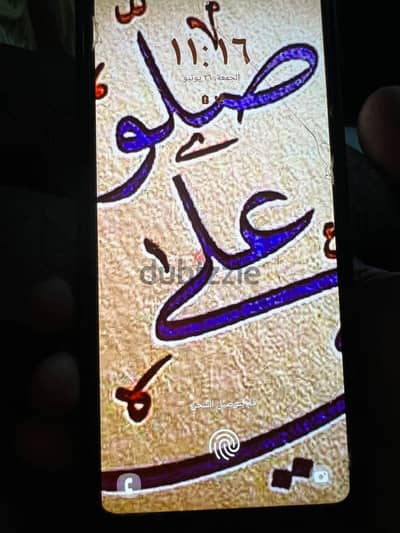 ١١:١٦
الجمعة، ١٦ يونيو
صلوا
على
dubizzle